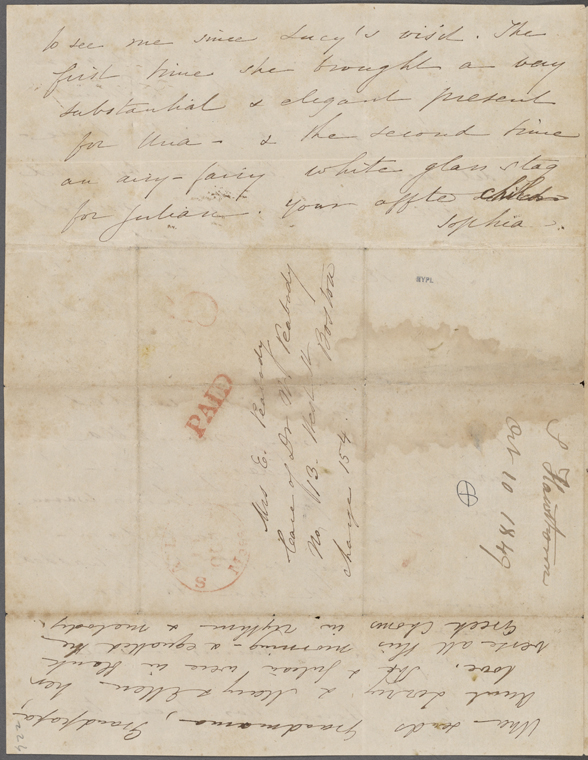 to see me since Lucy's visit. The
first time she brought a very
substantial & elegant present
for Una - & the second time
an airy-fairy white glass stag
for Julian. Your affte child
Sophia.
NYPL
PAID
Mrs E. Peabody
Care of Dr N. Peabody
No 13. West St Boston
charge 154
S Hawthorne
Oct 10 1849
4
Una sends Grandmama, Grandpapa,
Aunt Lizzy, & Mary & Ellen her
love. She & Julian were in blank
verse all this morning - & equalled the
Greek Chorus in rhythm & melody.